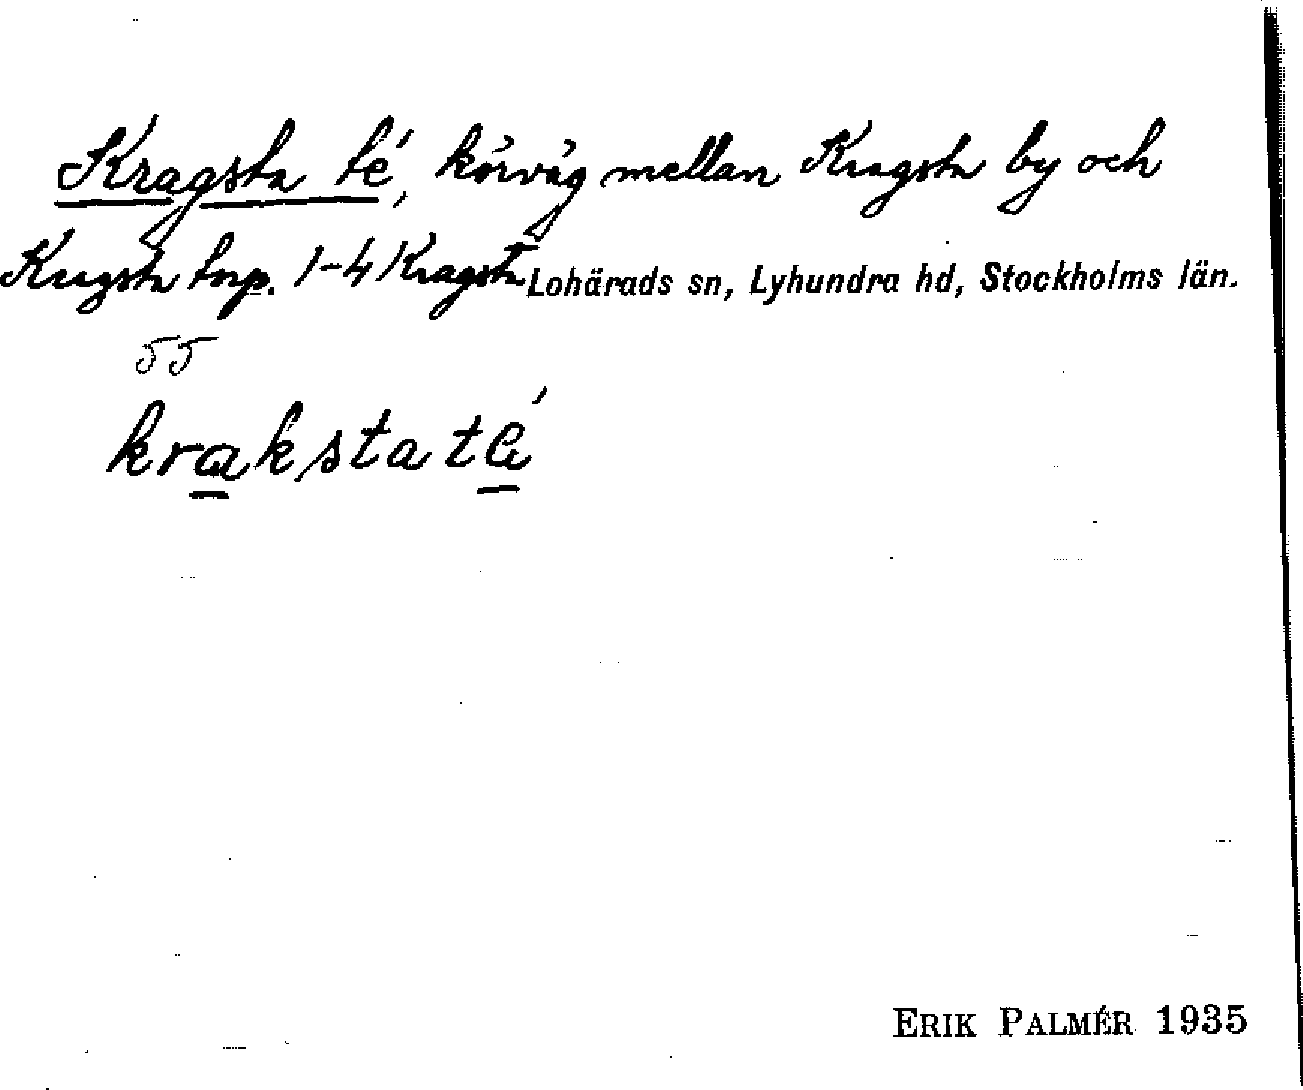 Kragsta té, körväg mellan Kragsta by och
Kragsta torp. 1-4 Kragsta Lohärads sn, Lyhundra hd, Stockholms län.
55
krakstaté
ERIK PALMÉR 1935